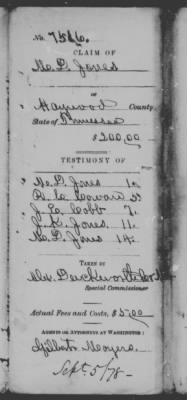 No. 7586.
CLAIM OF
M. P. Jones
OF
Haywood County,
State of Tennessee
$200,00
TESTIMONY OF
M. P. Jones 1
R. C. Coward
J. C. Cobb 7.
J. K. Jones 11.
M. P. Jones 14.
TAKEN BY
Alex. Duckworth
Special Commissioner
Actual Fees and Costs, $5.00
AGENTS OR ATTORNEYS AT WASHINGTON:
Gilbert Moyers
Sept. 5/78-